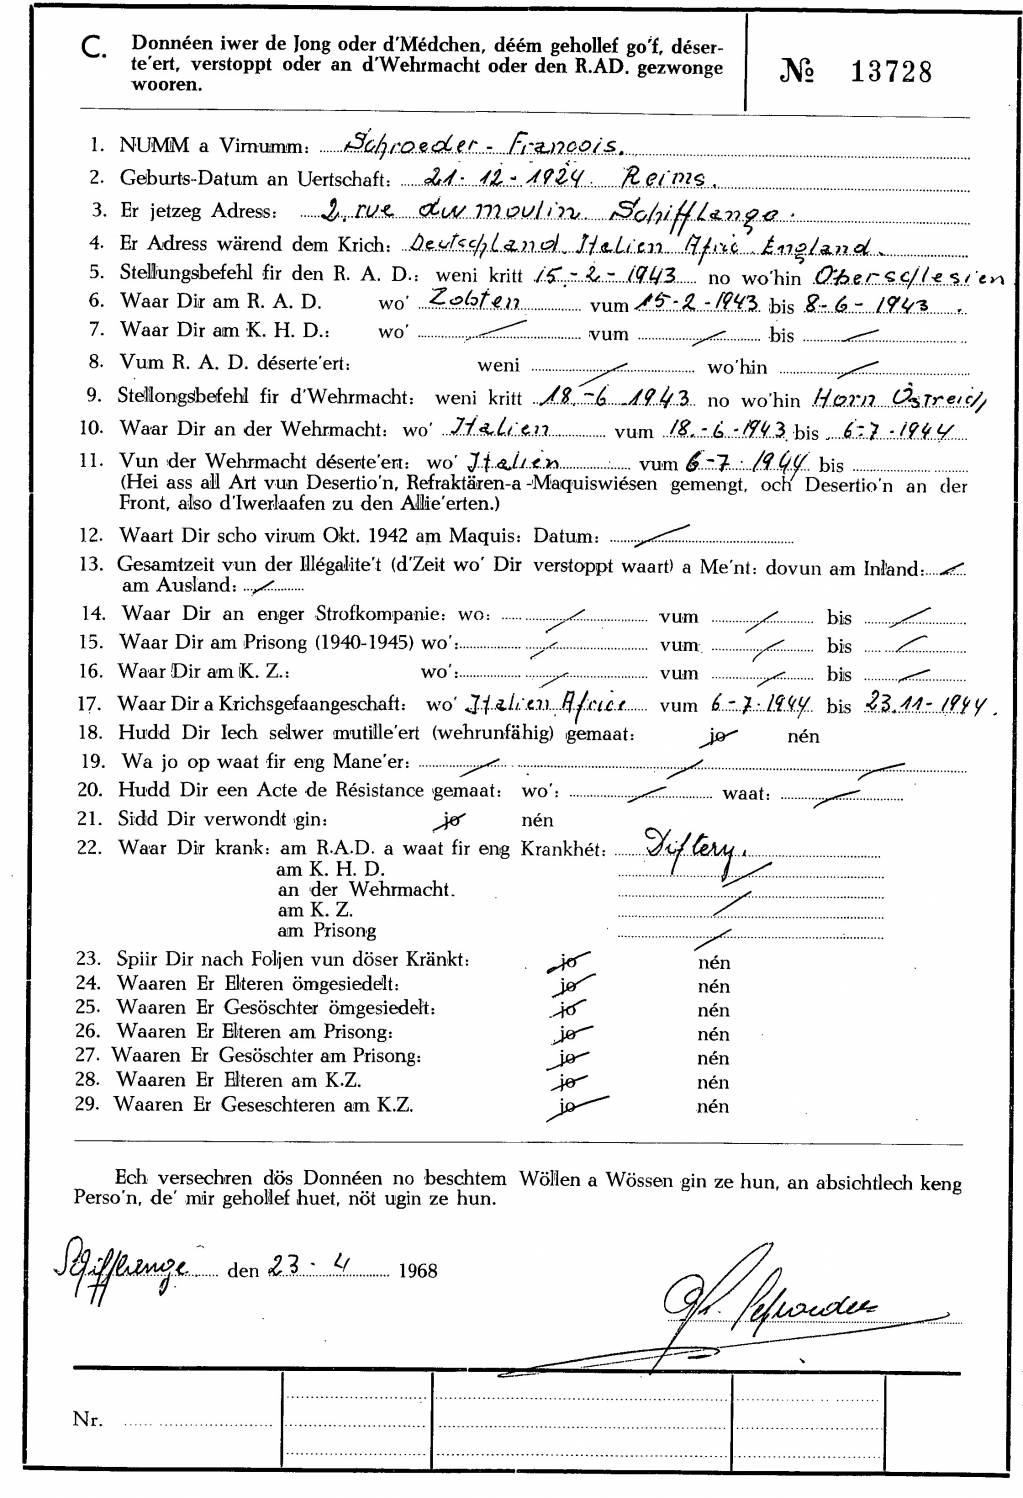 C. Donnéen iwer de Jong oder d'Médchen, déém gehollef go'f, déser-
te'ert, verstoppt oder an d'Wehrmacht oder den R.AD. gezwonge
wooren.
№ 13728
1. NUMM a Virnumm: Schroeder - François.
2. Geburts-Datum an Uertschaft: 21. 12 - 1924. Reims.
3. Er jetzeg Adress: 2, rue du moulin Schifflange.
4. Er Adress wärend dem Krich: Deutschland, Italien Afric. England.
5. Stellungsbefehl fir den R. A. D.: weni kritt 15.-2-1943 no wo'hin Oberschlesien
6. Waar Dir am R. A. D. wo' Zobten vum 15-2-1943 bis 8-6-1943.
7. Waar Dir am K. H. D.: wo' / vum / bis /
8. Vum R. A. D. déserte'ert: weni / wo'hin /
9. Stellongsbefehl fir d'Wehrmacht: weni kritt 18.-6.1943 no wo'hin Horn Östreich
10. Waar Dir an der Wehrmacht: wo' Italien vum 18.-6-1943 bis 6-7-1944
11. Vun der Wehrmacht déserte'ert: wo' Italien vum 6-7-1944 bis
(Hei ass all Art vun Desertio'n, Refraktären-a-Maquiswiésen gemengt, och Desertio'n an der
Front, also d'Iwerlaafen zu den Allie'erten.)
12. Waart Dir scho virum Okt. 1942 am Maquis: Datum: /
13. Gesamtzeit vun der Illégalite't (d'Zeit wo' Dir verstoppt waart) a Me'nt: dovun am Inland: /
am Ausland: /
14. Waar Dir an enger Strofkompanie: wo: / vum / bis /
15. Waar Dir am Prisong (1940-1945) wo': / vum / bis /
16. Waar Dir am K. Z.: wo': / vum / bis /
17. Waar Dir a Krichsgefaangeschaft: wo' Italien, Africe vum 6-7-1944 bis 23.11-1944.
18. Hudd Dir Iech selwer mutille'ert (wehrunfähig) gemaat: jo nén
19. Wa jo op waat fir eng Mane'er: / / /
20. Hudd Dir een Acte de Résistance gemaat: wo': / waat: /
21. Sidd Dir verwondt gin: jo nén
22. Waar Dir krank: am R.A.D. a waat fir eng Krankhét: Diftery.
am K. H. D. /
an der Wehrmacht.
am K. Z. /
am Prisong /
23. Spiir Dir nach Foljen vun döser Kränkt: jo nén
24. Waaren Er Elteren ömgesiedelt: jo nén
25. Waaren Er Gesöschter ömgesiedelt: jo nén
26. Waaren Er Elteren am Prisong: jo nén
27. Waaren Er Gesöschter am Prisong: jo nén
28. Waaren Er Elteren am K.Z. jo nén
29. Waaren Er Geseschteren am K.Z. jo nén
Ech versechren dös Donnéen no beschtem Wöllen a Wössen gin ze hun, an absichtlech keng
Perso'n, de' mir gehollef huet, nöt ugin ze hun.
Schifflange den 23. 4 1968
Schroeder
Nr.